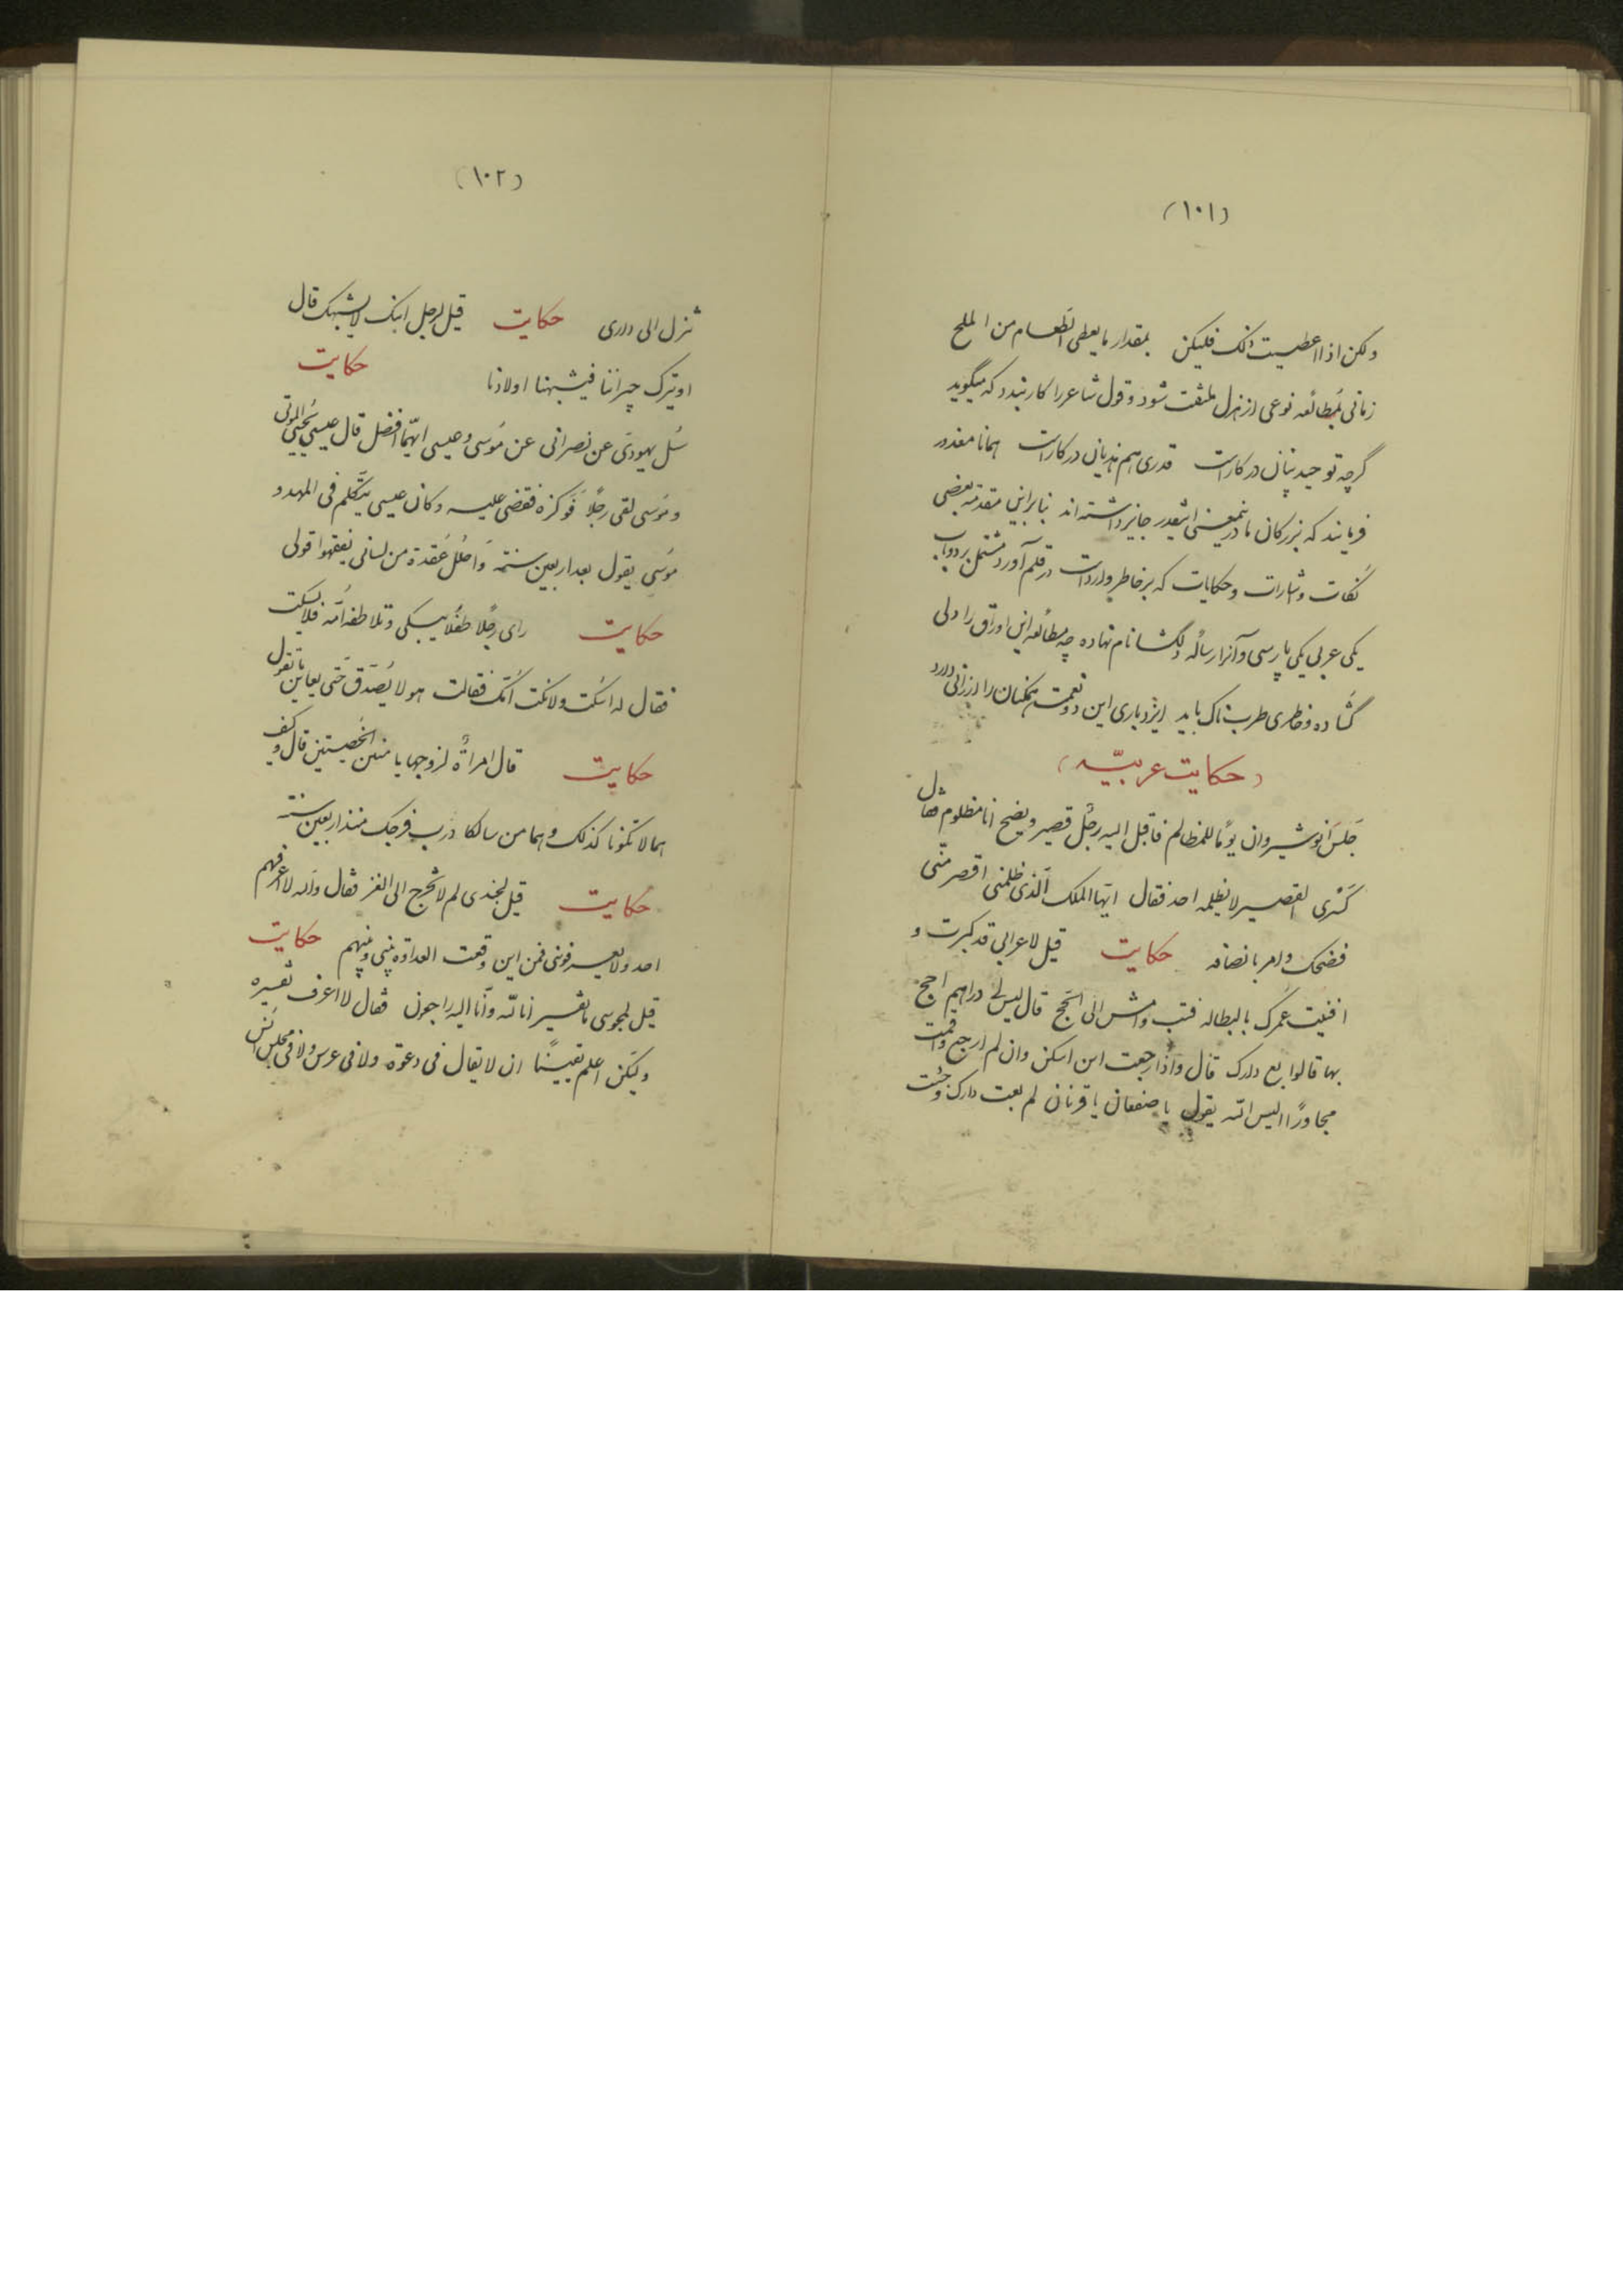 (۱۰۱)
ولکن اذا اعطیت ذلک فلیکن بمقدار ما یعطی الطعام من الملح
زمانی بمطالعه نوعی از هزل ملتفت شود و قول شاعر را کار بندد که میگوید
گرچه توحید بنان در کارست قدری هم هذیان در کارست همانا معذور
فرمایند که بزرکان ما در ینمعنی اینقدر جایز داشته اند بنابراین مقدمه بعضی
نکات و اشارات و حکایات که بر خاطر وارد است در قلم آورد مشتمل بر دو باب
یکی عربی یکی پارسی و آنرا رساله دلگشا نام نهاده چه مطالعه این اوراق را دلی
گشاده و خاطری طربناک باید ایزد باری این دو نعمت همکنان را ارزانی دارد
(حکایت عربیّه)
جَلَسَ انوشیروان یومًا للمظالم فاقبل الیه رجُل قصیر و یضج انا مظلوم فقال
کَسْری القصیر لا یظلمه احد فقال ایها الملک الّذی ظلمنی اقصر منّی
فضحک و امر بانصافه حکایت قیل لاعرابی قد کبرت و
افنیت عمرک بالبطاله فتب و امش الی الحَج قال لیس لی دراهم احج
بها قالوا بع دارک قال و اذا رجعت این اسکن و ان لم ارجع و اقمت
مجاورًا الیس الله یقول یا صفعان یا قرنان لم بعت دارک و جئت
(۱۰۲)
تنزل الی داری حکایت قیل لرجل ابنک لا یشبهک قال
او یترک جیراننا فیشبهنا اولادنا حکایت
سُئل یهودی عن نصرانی عن مُوسی و عیسی ایهّما افضل قال عیسی یُحیی الموتی
و مُوسی لقی رجُلاً فَوکزه فقضی علیه و کان عیسی یتکلم فی المهد و
مُوسی یقول بعد اربعین سنة وَاحلُل عُقدة من لسانی یفقهوا قولی
حکایت رای رجُلا طفلًا یبکی و تلاطفه اُمّه فلا یسکت
فقال له اسکت و لانکت اُمّک فقالت هو لا یُصَدّق حَتی یعاین ما تقول
حکایت قال امراةٌ لزوجها یا منتن الخُصیتین قال و کیف
هما لا تکونا کذلک و هما من سالکا درب فرجک منذ اربعین سنة
حکایت قیل لجندی لم لا تخرج الی الغز فقال والله لا اعرفهم
احد و لا یعرفوننی فمن این وقعت العداوه بینی و بینهم حکایت
قیل لمجوسی ما تفسیر انا لله و انّا الیه راجعون فقال لا اعرف تفسیره
ولکن اعلم یقینًا ان لا یقال فی دعوة ولا فی عرس ولا فی مجلس اُنس